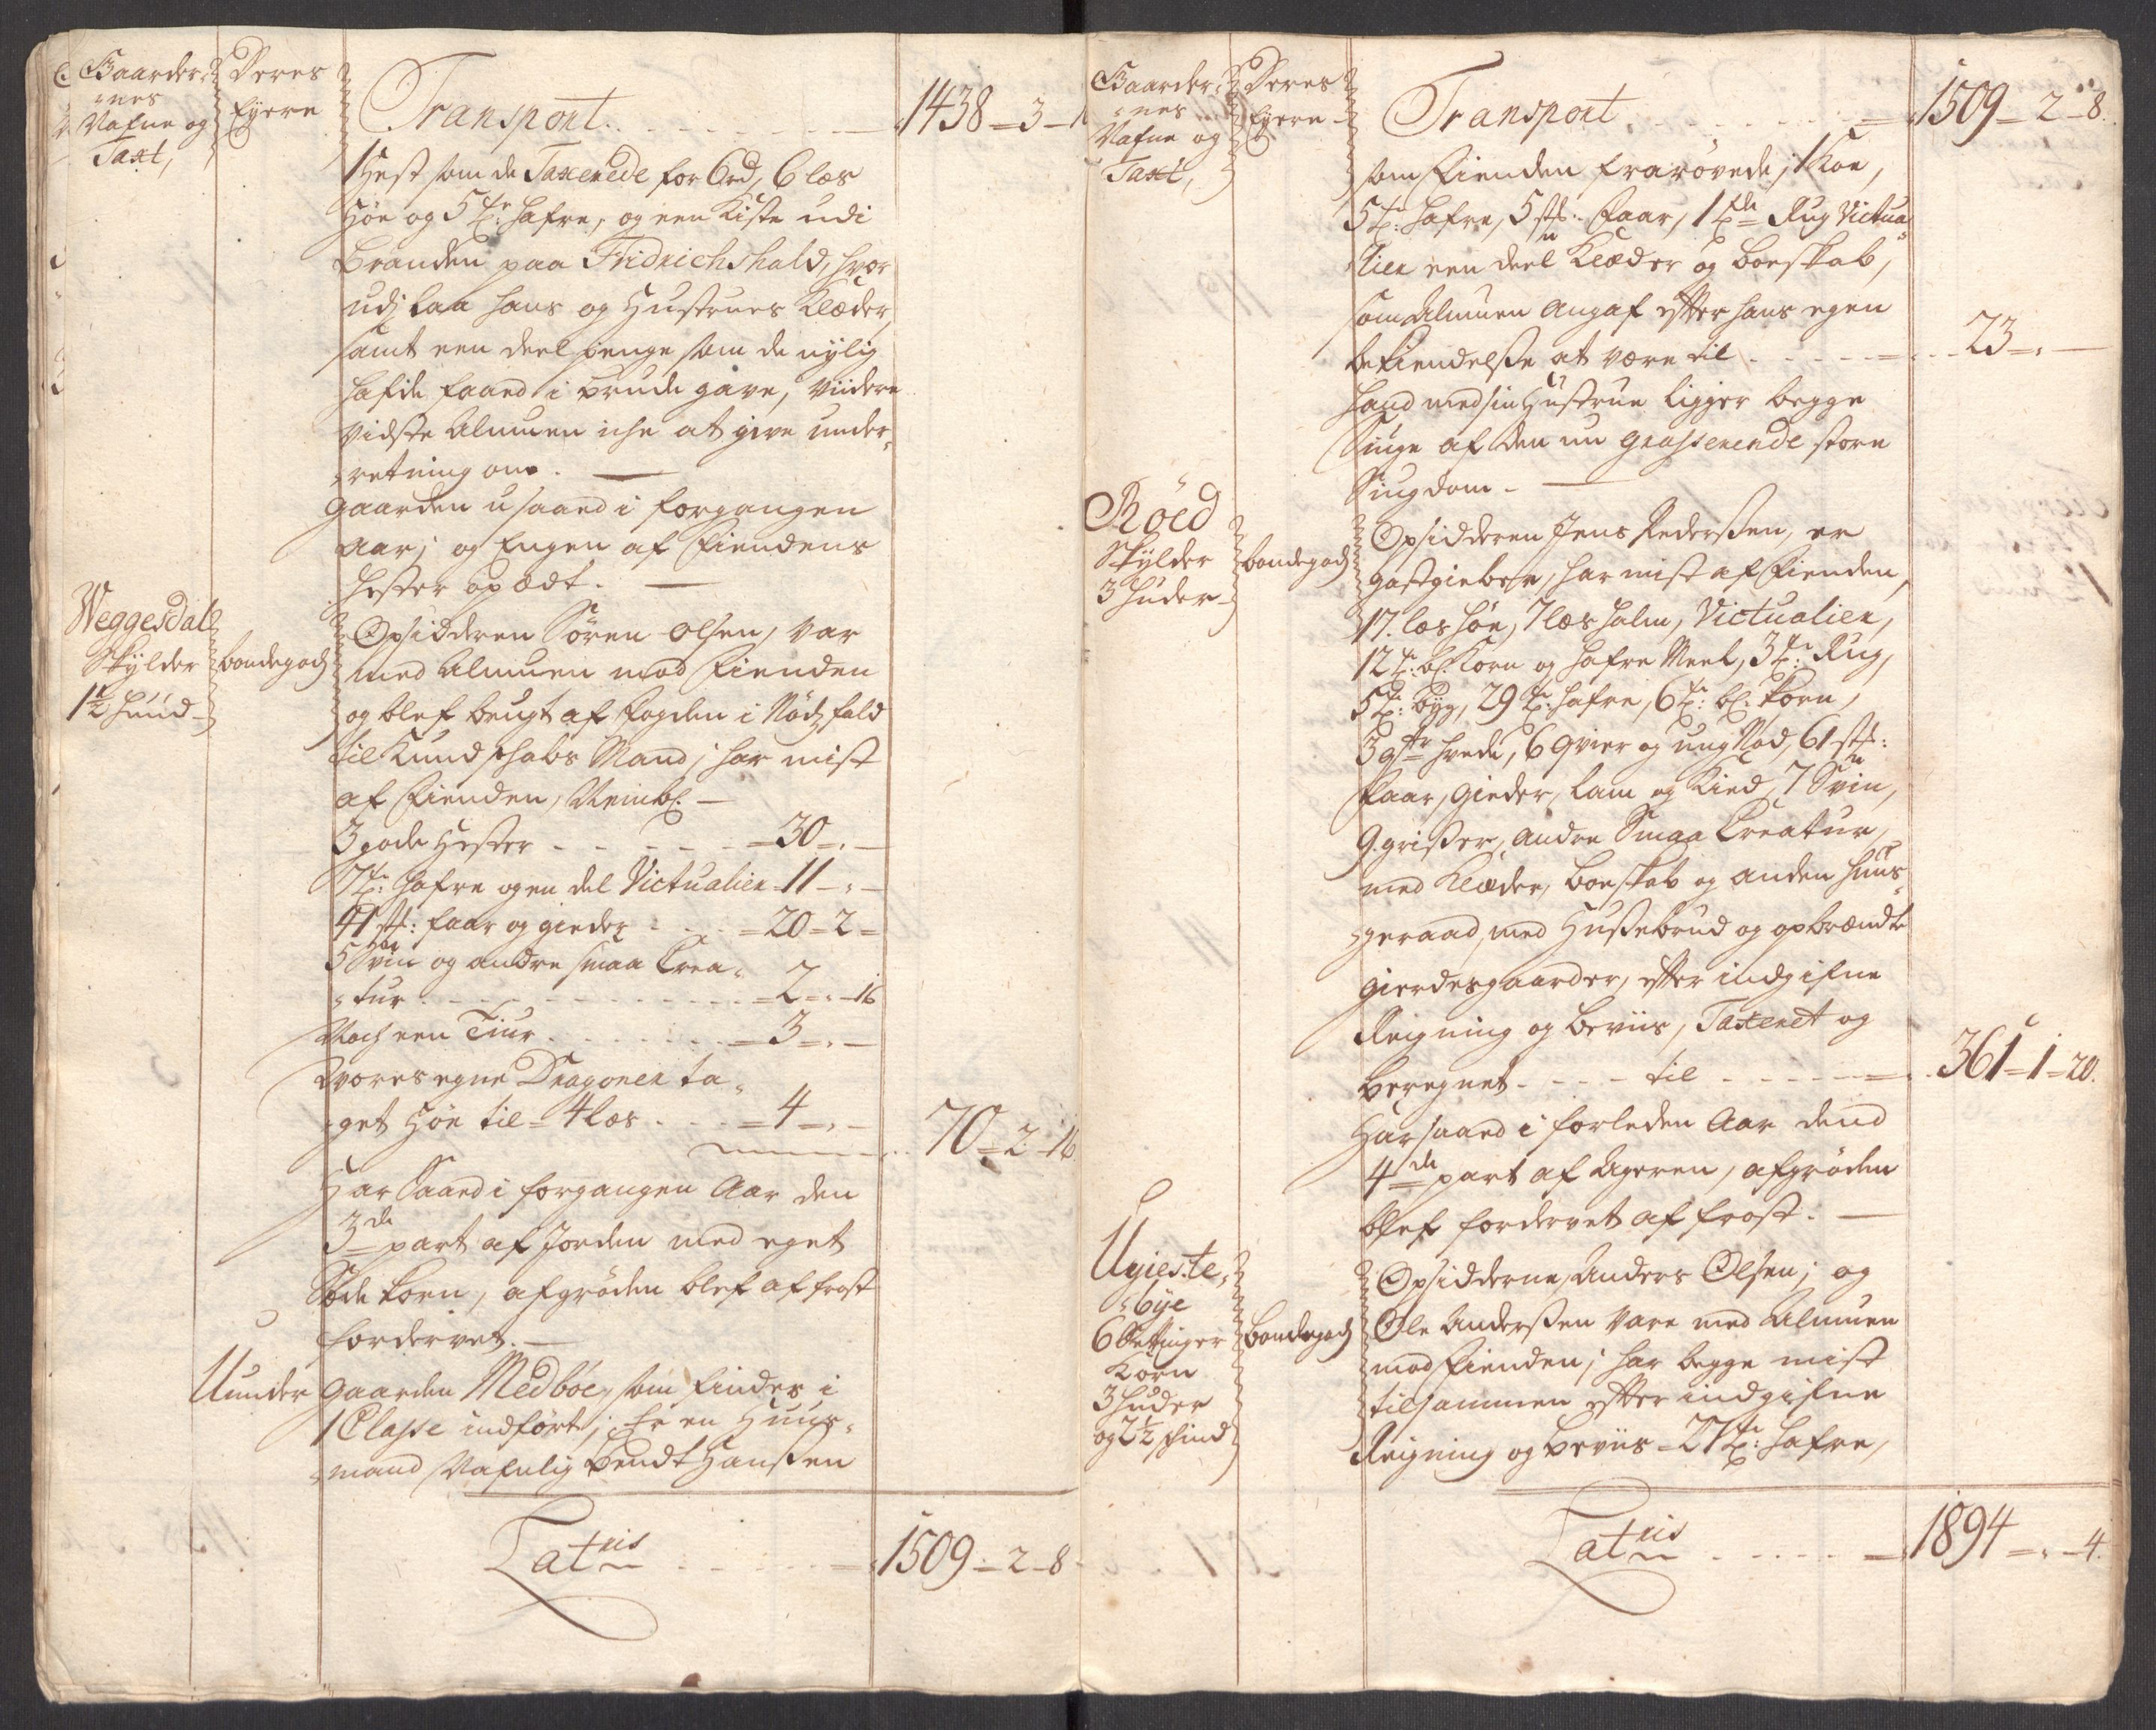 Gaarder-
nes
Nafne og
Taxt,
Deres
Eyere
Transport. 1438-3-1
1 Hest som de Taxerede for 6 rd, 6 læs
Høe og 5 t: hafre, og een Kiste udi
Branden paa Fridrichshald, hvor
udj laa hans og Hustrues Klæder,
samt een deel penge som de nylig
hafde faaed i brude gave, viidere
vidste Almuen iche at give under-
retning om.
Gaarden usaaed i forgangen
Aar; og Engen af Fiendens
Hester opædt.
Weggersdal
Skylder
1½ hund
bondegods
Opsidderen Sören Olsen, var
med Almuen mod Fienden
og blef brugt af Fogden i Nödsfald
til Kundschabs Mand; har mist
af Fienden, Nembl.
3 gode Hester 30
7 t: hafre og en del Victualier 11
41 st: faar og gieder 20-2
5 Svin og andre smaa Crea-
tur 2-16
Noch een Tiur 3
Vores egne Dragoner ta-
get Høe til 4 læs 4 70-2-16
Har Saaed i forgangen Aar den
3de part af Jorden med eget
Sæde korn, afgröden blef af frost
fordervet.
Uunder Gaarden Medböe, som findes i
1 Classe indfört; Er en Huus-
mand Nafnlig Bendt Hanssen
Lateris 1509-2-8
Gaarder-
nes
Nafne og
Taxt,
Deres
Eyere
Transport 1509-2-8.
som Fienden frarövede; 1 Koe,
5 t: hafre, 5 st: Faar, 1 fde Rug Victua-
lier een deel Klæder og boeskab,
som Almuen angaf effter hans egen
bekiendelsse at være til 23
Hand med sin Hustrue ligger begge
Siuge af den nu grasserende store
Siugdom.
Röed
Skylder
3 huder
bondegods
Opsidderen Jens Pederssen, er
gastgieber, har mist af Fienden,
17. læs höe, 7 læs halm, Victualier,
12 t. bl: Korn og hafre Meel, 3 t: Rug,
5 t: byg, 29 t: hafre, 6 t: bl: korn,
3 qtr hvede, 6 qvier og ung Nöd, 61 st:
Faar, gieder, lam og Kied, 7 Svin,
9. grisser, andre Smaa Creatur,
med Klæder, boeskab og anden huus-
geraad, med Hussebrud og opbrændte
gierdesgaarder, effter indgifne
Reigning og beviis, Taxeret og
beregnet til 361-1-20.
Har saaed i forleden Aar dend
4de part af Ageren, afgröden
blef fordervet af frost.
Ugieste-
bye
6 Settinger
Korn
3 huder
og 2½ schind
bondegods
Opsidderne, Anders Olsen; og
Ole Anderssen vare med Almuen
mod Fienden; har begge mist
tilsammen effter indgifne
Reigning og beviis 27 t: hafre,
Lateris 1894-4.